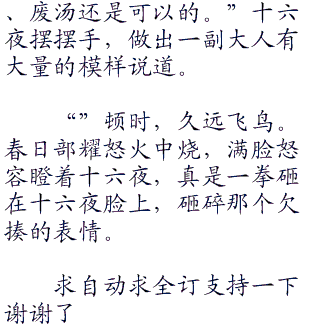 、废汤还是可以的。”十六
夜摆摆手，做出一副大人有
大量的模样说道。
“”顿时，久远飞鸟。
春日部耀怒火中烧，满脸怒
容瞪着十六夜，真是一拳砸
在十六夜脸上，砸碎那个欠
揍的表情。
求自动求全订支持一下
谢谢了